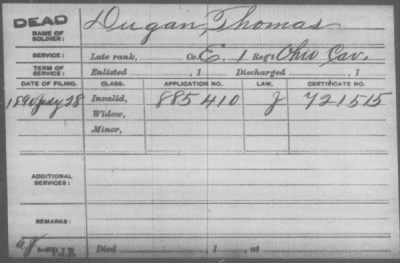 DEAD Dugan, Thomas
NAME OF SOLDIER:
SERVICE: Late rank, Co. E, 1 Reg't Ohio Cav.
TERM OF SERVICE: Enlisted , 1 Discharged , 1
DATE OF FILING. CLASS. APPLICATION NO. LAW. CERTIFICATE NO.
1890 July 28 Invalid, 885410 J 721515
Widow,
Minor,
ADDITIONAL SERVICES:
REMARKS:
Died , 1 , at